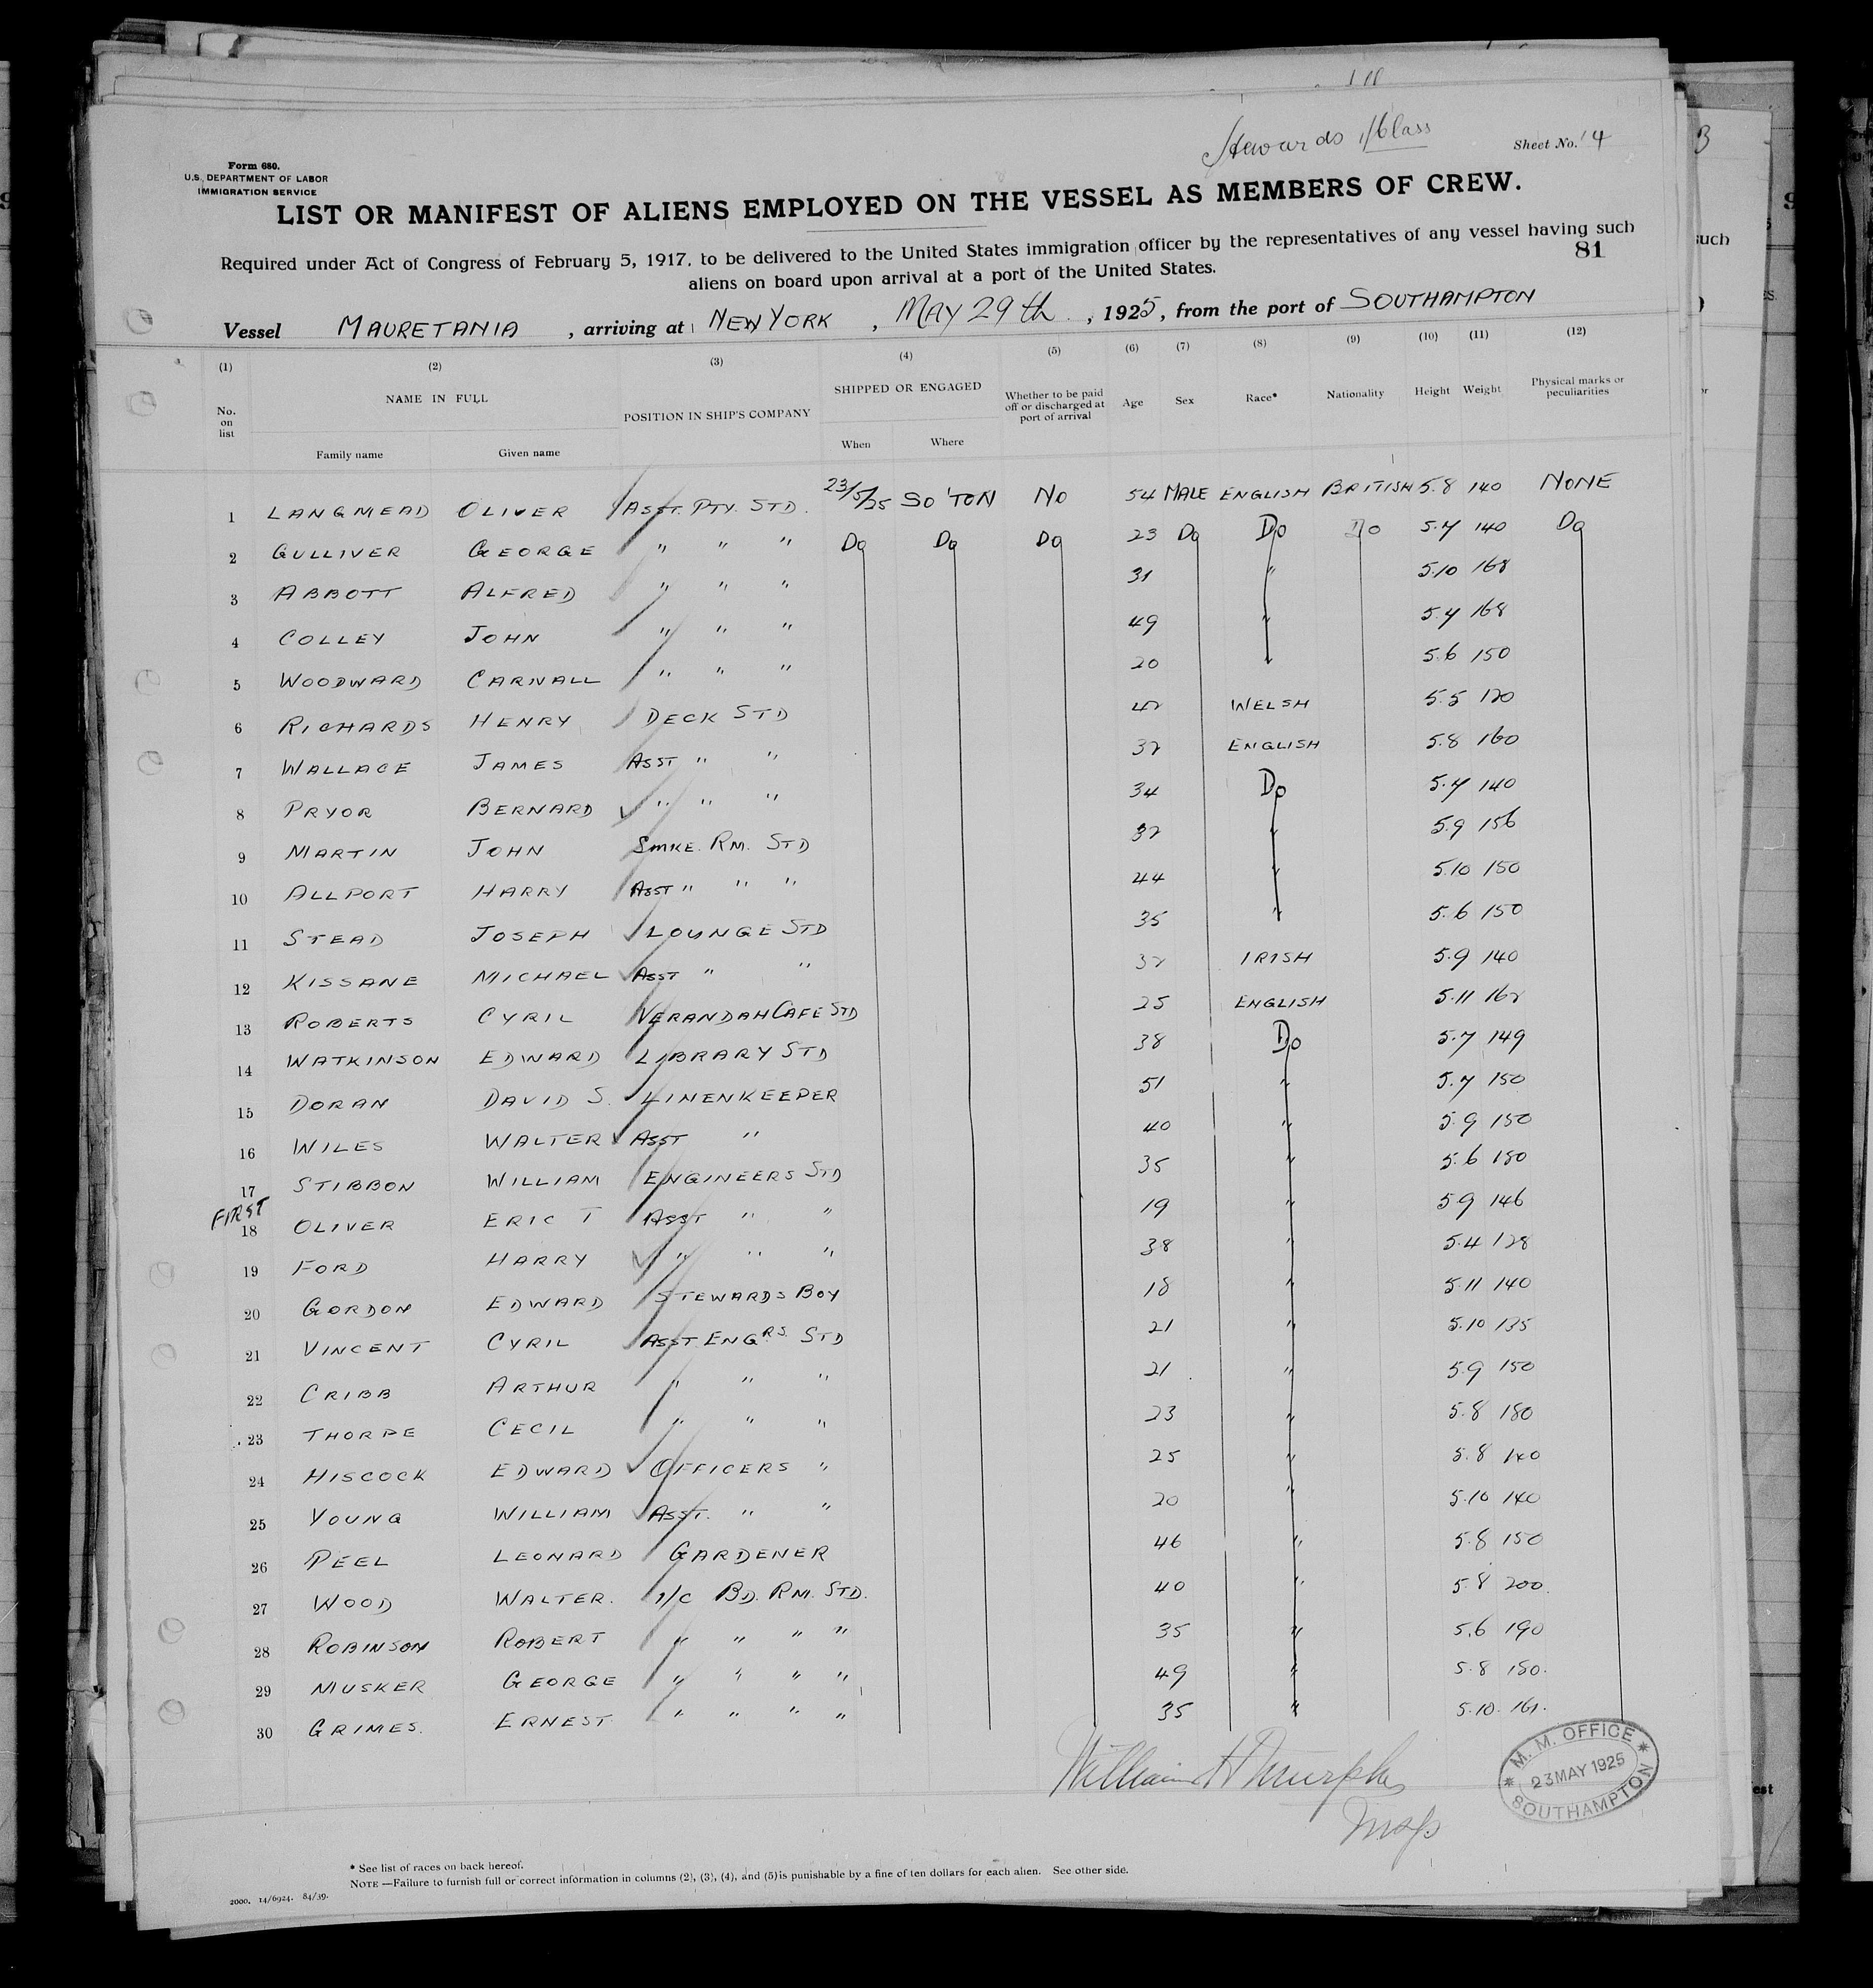 Stewards 1/Class
Sheet No. 14
Form 680.
U.S. DEPARTMENT OF LABOR
IMMIGRATION SERVICE
LIST OR MANIFEST OF ALIENS EMPLOYED ON THE VESSEL AS MEMBERS OF CREW.
Required under Act of Congress of February 5, 1917, to be delivered to the United States immigration officer by the representatives of any vessel having such
aliens on board upon arrival at a port of the United States.
81
Vessel MAURETANIA, arriving at NEW YORK, MAY 29th, 1925, from the port of SOUTHAMPTON
(1) (2) (3) (4) (5) (6) (7) (8) (9) (10) (11) (12)
No. on list NAME IN FULL POSITION IN SHIP'S COMPANY SHIPPED OR ENGAGED Whether to be paid off or discharged at port of arrival Age Sex Race* Nationality Height Weight Physical marks or peculiarities
Family name Given name When Where
1 LANGMEAD OLIVER ASST. PTY. STD. 23/5/25 SO'TON NO 54 MALE ENGLISH BRITISH 5.8 140 NONE
2 GULLIVER GEORGE " " " Do Do Do 23 Do Do Do 5.7 140 Do
3 ABBOTT ALFRED " " " 31 " 5.10 168
4 COLLEY JOHN " " " 49 " 5.7 168
5 WOODWARD CARNALL " " " 20 " 5.6 150
6 RICHARDS HENRY DECK STD 42 WELSH 5.5 120
7 WALLACE JAMES ASST " " 32 ENGLISH 5.8 160
8 PRYOR BERNARD " " " 34 Do 5.7 140
9 MARTIN JOHN SMKE. RM. STD 32 " 5.9 156
10 ALLPORT HARRY ASST " " " 44 " 5.10 150
11 STEAD JOSEPH LOUNGE STD 35 " 5.6 150
12 KISSANE MICHAEL ASST " " 32 IRISH 5.9 140
13 ROBERTS CYRIL VERANDAH CAFE STD 25 ENGLISH 5.11 162
14 WATKINSON EDWARD LIBRARY STD 38 Do 5.7 149
15 DORAN DAVID S. LINENKEEPER 51 " 5.7 150
16 WILES WALTER ASST " 40 " 5.9 150
17 STIBBON WILLIAM ENGINEERS STD 35 " 5.6 180
FIRST
18 OLIVER ERIC T ASST " " 19 " 5.9 146
19 FORD HARRY " " " 38 " 5.4 128
20 GORDON EDWARD STEWARDS BOY 18 " 5.11 140
21 VINCENT CYRIL ASST ENGRS. STD 21 " 5.10 135
22 CRIBB ARTHUR " " " 21 " 5.9 150
23 THORPE CECIL " " " 23 " 5.8 180
24 HISCOCK EDWARD OFFICERS " 25 " 5.8 140
25 YOUNG WILLIAM ASST. " " 20 " 5.10 140
26 PEEL LEONARD GARDENER 46 " 5.8 150
27 WOOD WALTER. 1/C BD. RM. STD. 40 " 5.8 200.
28 ROBINSON ROBERT " " " " 35 " 5.6 190
29 MUSKER GEORGE " " " " 49 " 5.8 150.
30 GRIMES. ERNEST. " " " " 35 " 5.10. 161.
William H Murphy
M. M. OFFICE
23 MAY 1925
SOUTHAMPTON
* See list of races on back hereof.
NOTE.—Failure to furnish full or correct information in columns (2), (3), (4), and (5) is punishable by a fine of ten dollars for each alien. See other side.
2000. 14/6924. 84/39.